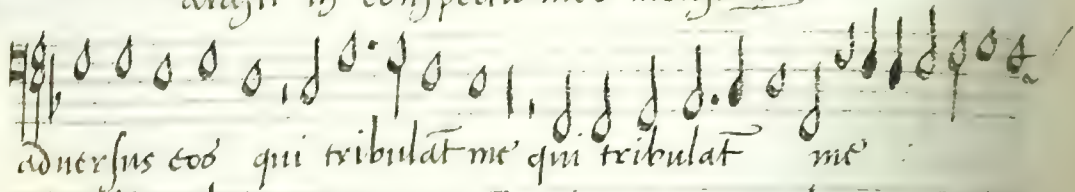 in conspectu meo mensam
adversus eos qui tribulat̄ me qui tribulat̄ me